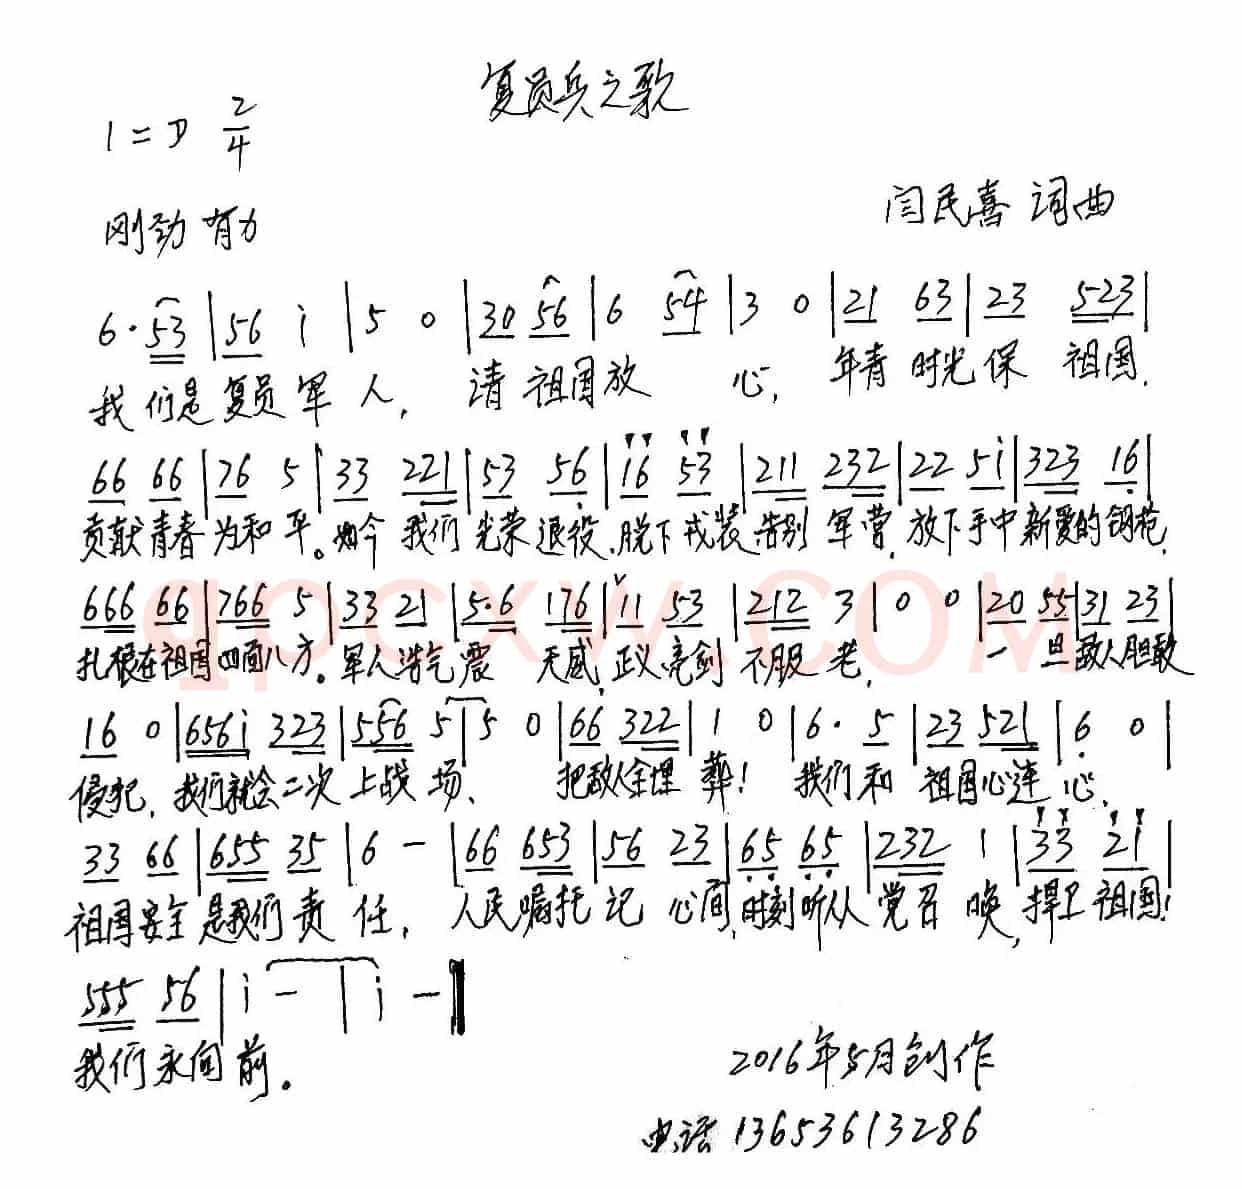 复员兵之歌
1=D 2/4
闫民喜 词曲
刚劲 有力
6· 53 | 56 i | 5 0 | 30 56 | 6 54 | 3 0 | 21 63 | 23 523 |
我们是复员军人, 请祖国放心, 年青时光保祖国.
66 66 | 76 5 | 33 221 | 53 56 | 16 53 | 211 232 | 22 5i | 323 16 |
贡献青春为和平。如今我们光荣退役,脱下戎装告别军营,放下手中新爱的钢枪,
666 66 | 766 5 | 33 21 | 5·6 176 | 11 53 | 212 3 | 0 0 | 20 55 | 31 23 |
扎根在祖国四面八方。军人浩气震天威,正义亮剑不服老, 一旦敌人胆敢
qpcxw.COM
16 0 | 656i 323 | 556 5 | 5 0 | 66 322 | 1 0 | 6· 5 | 23 521 | 6 0 |
侵犯,我们就会二次上战场、 把敌人全埋葬! 我们和祖国心连心,
33 66 | 655 35 | 6 - | 66 653 | 56 23 | 65 65 | 232 1 | 33 21 |
祖国安全是我们责任, 人民嘱托记心间,时刻听从党召唤,捍卫祖国!
555 56 | i - | i - ‖
我们永向前。
2016年5月创作
电话 13653613286